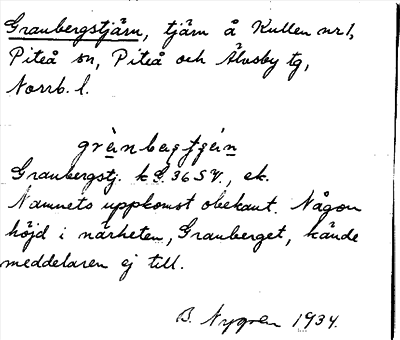 Graubergstjärn, tjärn å Kullen nr 1,
Piteå sn, Piteå och Älvsby tg,
Norrb. l.
Graubergstj. kS. 36 SV., ek.
Namnets uppkomst obekant. Någon
höjd i närheten, Grauberget, kände
meddelaren ej till.
B. Nygren 1934.